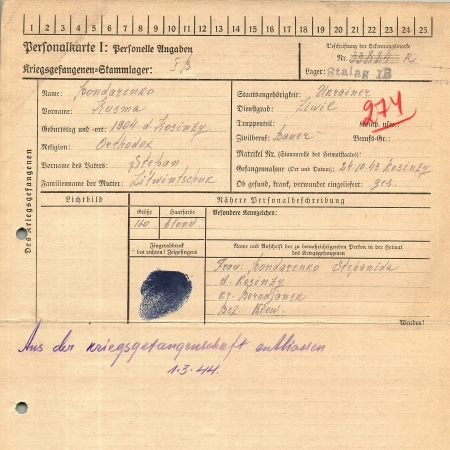 1 2 3 4 5 6 7 8 9 10 11 12 13 14 15 16 17 18 19 20 21 22 23 24 25
Personalkarte I: Personelle Angaben
Kriegsgefangenen-Stammlager: I B
Beschriftung der Erkennungsmarke
Nr.
Lager: Stalag IB
Des Kriegsgefangenen
Name: Bondarenko
Vorname: Kusma
Geburtstag und -ort: 1904 d. Kosinzy
Religion: Orthodox
Vorname des Vaters: Stepan
Familienname der Mutter: Litwintschuk
Staatsangehörigkeit: Ukrainer
Dienstgrad: Ziwil
Truppenteil: Komp. usw.:
Zivilberuf: Bauer Berufs-Gr.:
Matrikel Nr. (Stammrolle des Heimatstaates):
Gefangennahme (Ort und Datum): 24.10.43 Kosinzy
Ob gesund, krank, verwundet eingeliefert: ges.
274
Lichtbild
Nähere Personalbeschreibung
Größe Haarfarbe Besondere Kennzeichen:
160 blond
Fingerabdruck
des rechten! Zeigefingers
Name und Anschrift der zu benachrichtigenden Person in der Heimat
des Kriegsgefangenen
Frau: Bondarenko Stepanida
d. Kosinzy
Kr. Borodjansk
Bez. Kiew
Wenden!
Aus der Kriegsgefangenschaft entlassen
1.3.44.